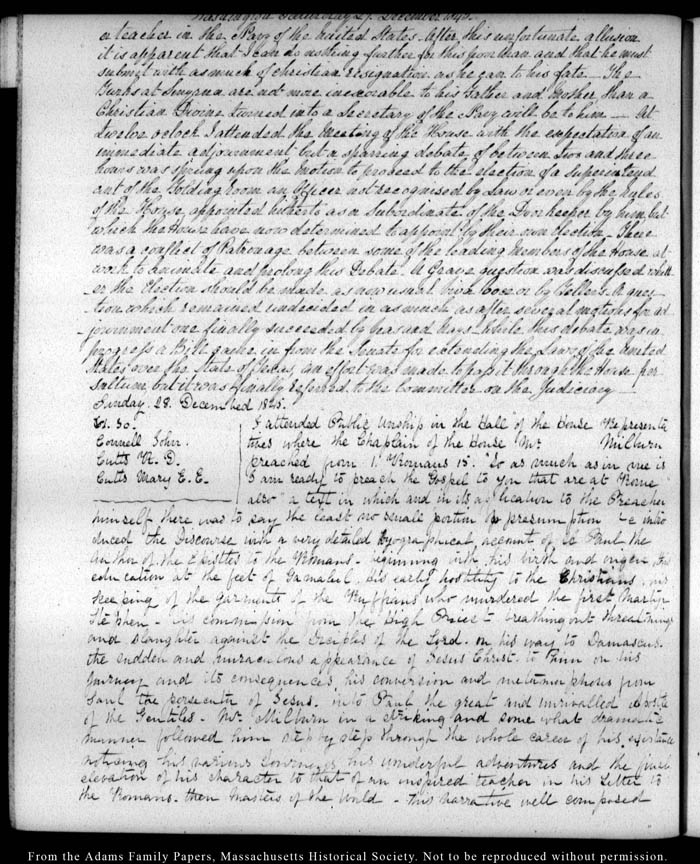 Washington Saturday 27. December 1845.
a teacher in the Navy of the United States. After this unfortunate allusion
it is apparent that I can do nothing further for this poor man and that he must
submit with as much of christian resignation as he can to his fate — The
Turks at Smyrna are not more inexorable to his Father and Mother than a
Christian Divine turned into a Secretary of the Navy will be to him — At
twelve o clock I attended the Meeting of the House with the expectation of an
immediate adjournment but a sparring debate of between two and three
hours was sprung upon the motion to proceed to the election of a Superintend
ant of the Folding room an Officer not recognised by Law or even by the Rules
of the House, appointed hitherto as a Subordinate of the Doorkeeper by him, but
which the House have now determined to appoint by their own Election — There
was a conflict of Patronage between some of the leading Members of the House at
work to animate and prolong this Debate. A Grave question was discussed wheth
er the Election should be made as now usual Viva Voce or by Tellers. A ques
tion which remained undecided in as much as after several motions for ad
journment one finally succeeded by Yeas and Nays. While this debate was in
progress a Bill came in from the Senate for extending the Laws of the United
States over the State of Texas, an effort was made to pass it through the House per
Saltum, but it was finally referred to the Committee on the Judiciary
Sunday. 28. December 1845.
Connell John.
Cutts R. D.
Cutts Mary E. E.
I attended Public Worship in the Hall of the House Representa
tives where the Chaplain of the House Mr Milburn
preached from 1. Romans 15. "So as much as in me is
I am ready to preach the Gospel to you that are at Rome
also" a text in which and in its application to the Preacher
himself there was to say the least no small portion of presumption — He intro
duced the Discourse with a very detailed biographical account of St Paul the
Author of the Epistles to the Romans — beginning with his birth and origen, his
education at the feet of Gamaliel, his early hostility to the Christians, his
keeping of the garments of the Ruffians who murdered the first Martyr
Stephen — his commission from the High Priest — breathing out threatnings
and slaughter against the Disciples of the Lord. on his way to Damascus.
the sudden and miraculous appearance of Jesus Christ. to him on his
journey and its consequences, his conversion and metamorphosis from
Saul the persecutor of Jesus. into Paul the great and unrivalled Apostle
of the Gentiles — Mr Milburn in a striking and some what dramatic
manner followed him step by step through the whole career of his existence
noticing his various Journeys his wonderful adventures and the final
elevation of his character to that of an inspired teacher in his Letter to
the Romans. then Masters of the World — This narrative well composed
From the Adams Family Papers, Massachusetts Historical Society. Not to be reproduced without permission.